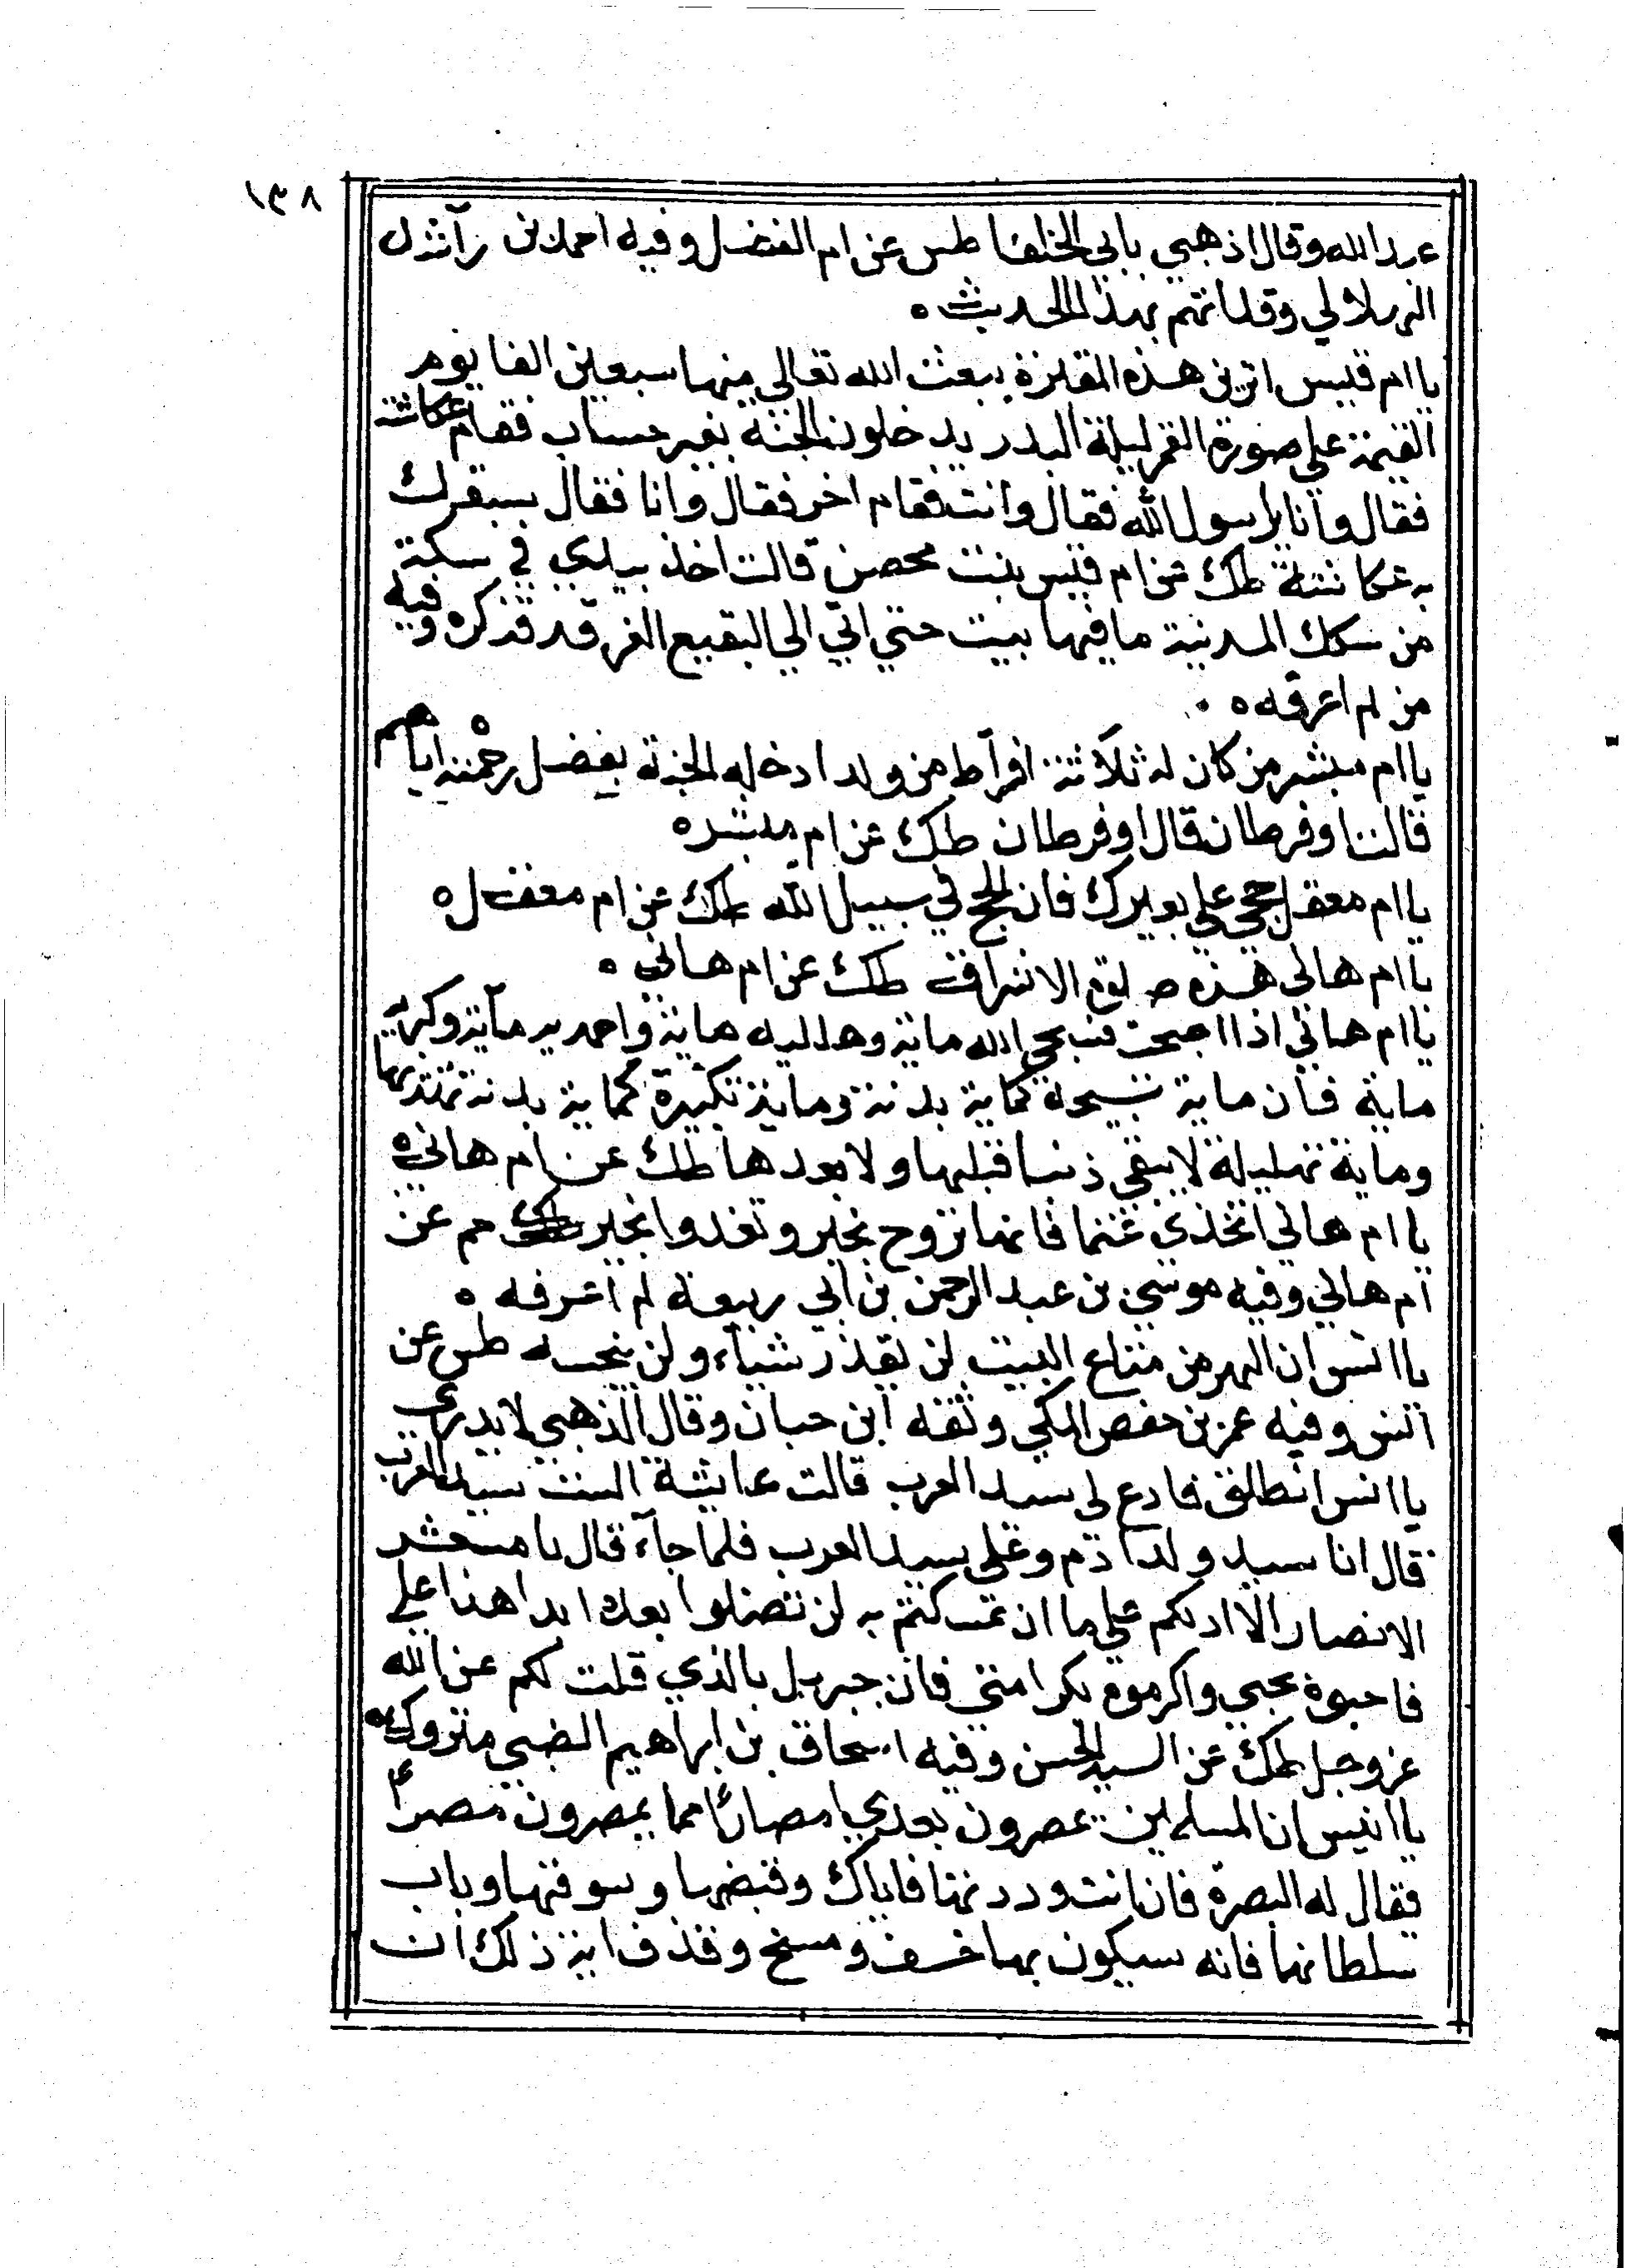 ١٣٨
عبد الله وقال اذهبي بابي الخلفا طس عن ام الفضل وفيه احمد بن راشد
الهلالي وقد اتهم بهذا الحديث ه
يا ام قيس اترين هذه المقبرة يبعث الله تعالي منها سبعين الفا يوم
القيمة علي صورة القمر ليلة البدر يدخلون الجنة بغير حساب فقام عكاشة
فقال وانا يا رسول الله فقال وانت فقام اخر فقال وانا فقال سبقك
به عكاشة طك عن ام قيس بنت محصن قالت اخذ بيدي في سكة
من سكك المدينة ما فيها بيت حتي اتي الي البقيع الغرقد فذكره وفيه
من لم اعرفه ه
يا ام مبشر من كان له ثلاثة افراط من ولد ادخله الجنة بفضل رحمته اياهم
قالت او فرطان قال او فرطان طك عن ام مبشر ه
يا ام معقل حجي علي بعيرك فان الحج في سبيل الله طك عن ام معقل ه
يا ام هاني هذه صلوة الاشراق طك عن ام هاني ه
يا ام هاني اذا اصبحت فسبحي الله ماية وهلليه ماية واحمديه ماية وكبريه
ماية فان ماية تسبيحة كماية بدنة وماية تكبيرة كماية بدنة تهديها
وماية تهليلة لا تبقي ذنبا قبلها ولا بعدها طك عن ام هاني ه
يا ام هاني اتخذي غنما فانها تروح بخير وتغدوا بخير حم عن
ام هاني وفيه موسي بن عبد الرحمن بن ابي ربيعة لم اعرفه ه
يا انس ان الهر من متاع البيت لن يقذر شياء ولن ينجسه طس عن
انس وفيه عمر بن حفص المكي وثقه ابن حبان وقال الذهبي لا يدري
يا انس انطلق فادع لي سيد العرب قالت عايشة الست سيد العرب
قال انا سيد ولد آدم وعلي سيد العرب فلما جآء قال يا معشر
الانصار الا ادلكم علي ما ان تمسكتم به لن تضلوا بعده ابدا هذا علي
فاحبوه بحبي واكرموه بكرامتي فان جبريل بالذي قلت لكم عن الله
عز وجل طك عن السيد الحسن وفيه اسحاق بن ابراهيم الضبي متروك ه
يا انيس ان المسلمين يمصرون بعدي امصارا مما يمصرون مصرا
فقال له البصرة فان انت وردتها فاياك وقبضها وسوقها وباب
سلطانها فانه سيكون بها خسف ومسخ وقذف اية ذلك ان